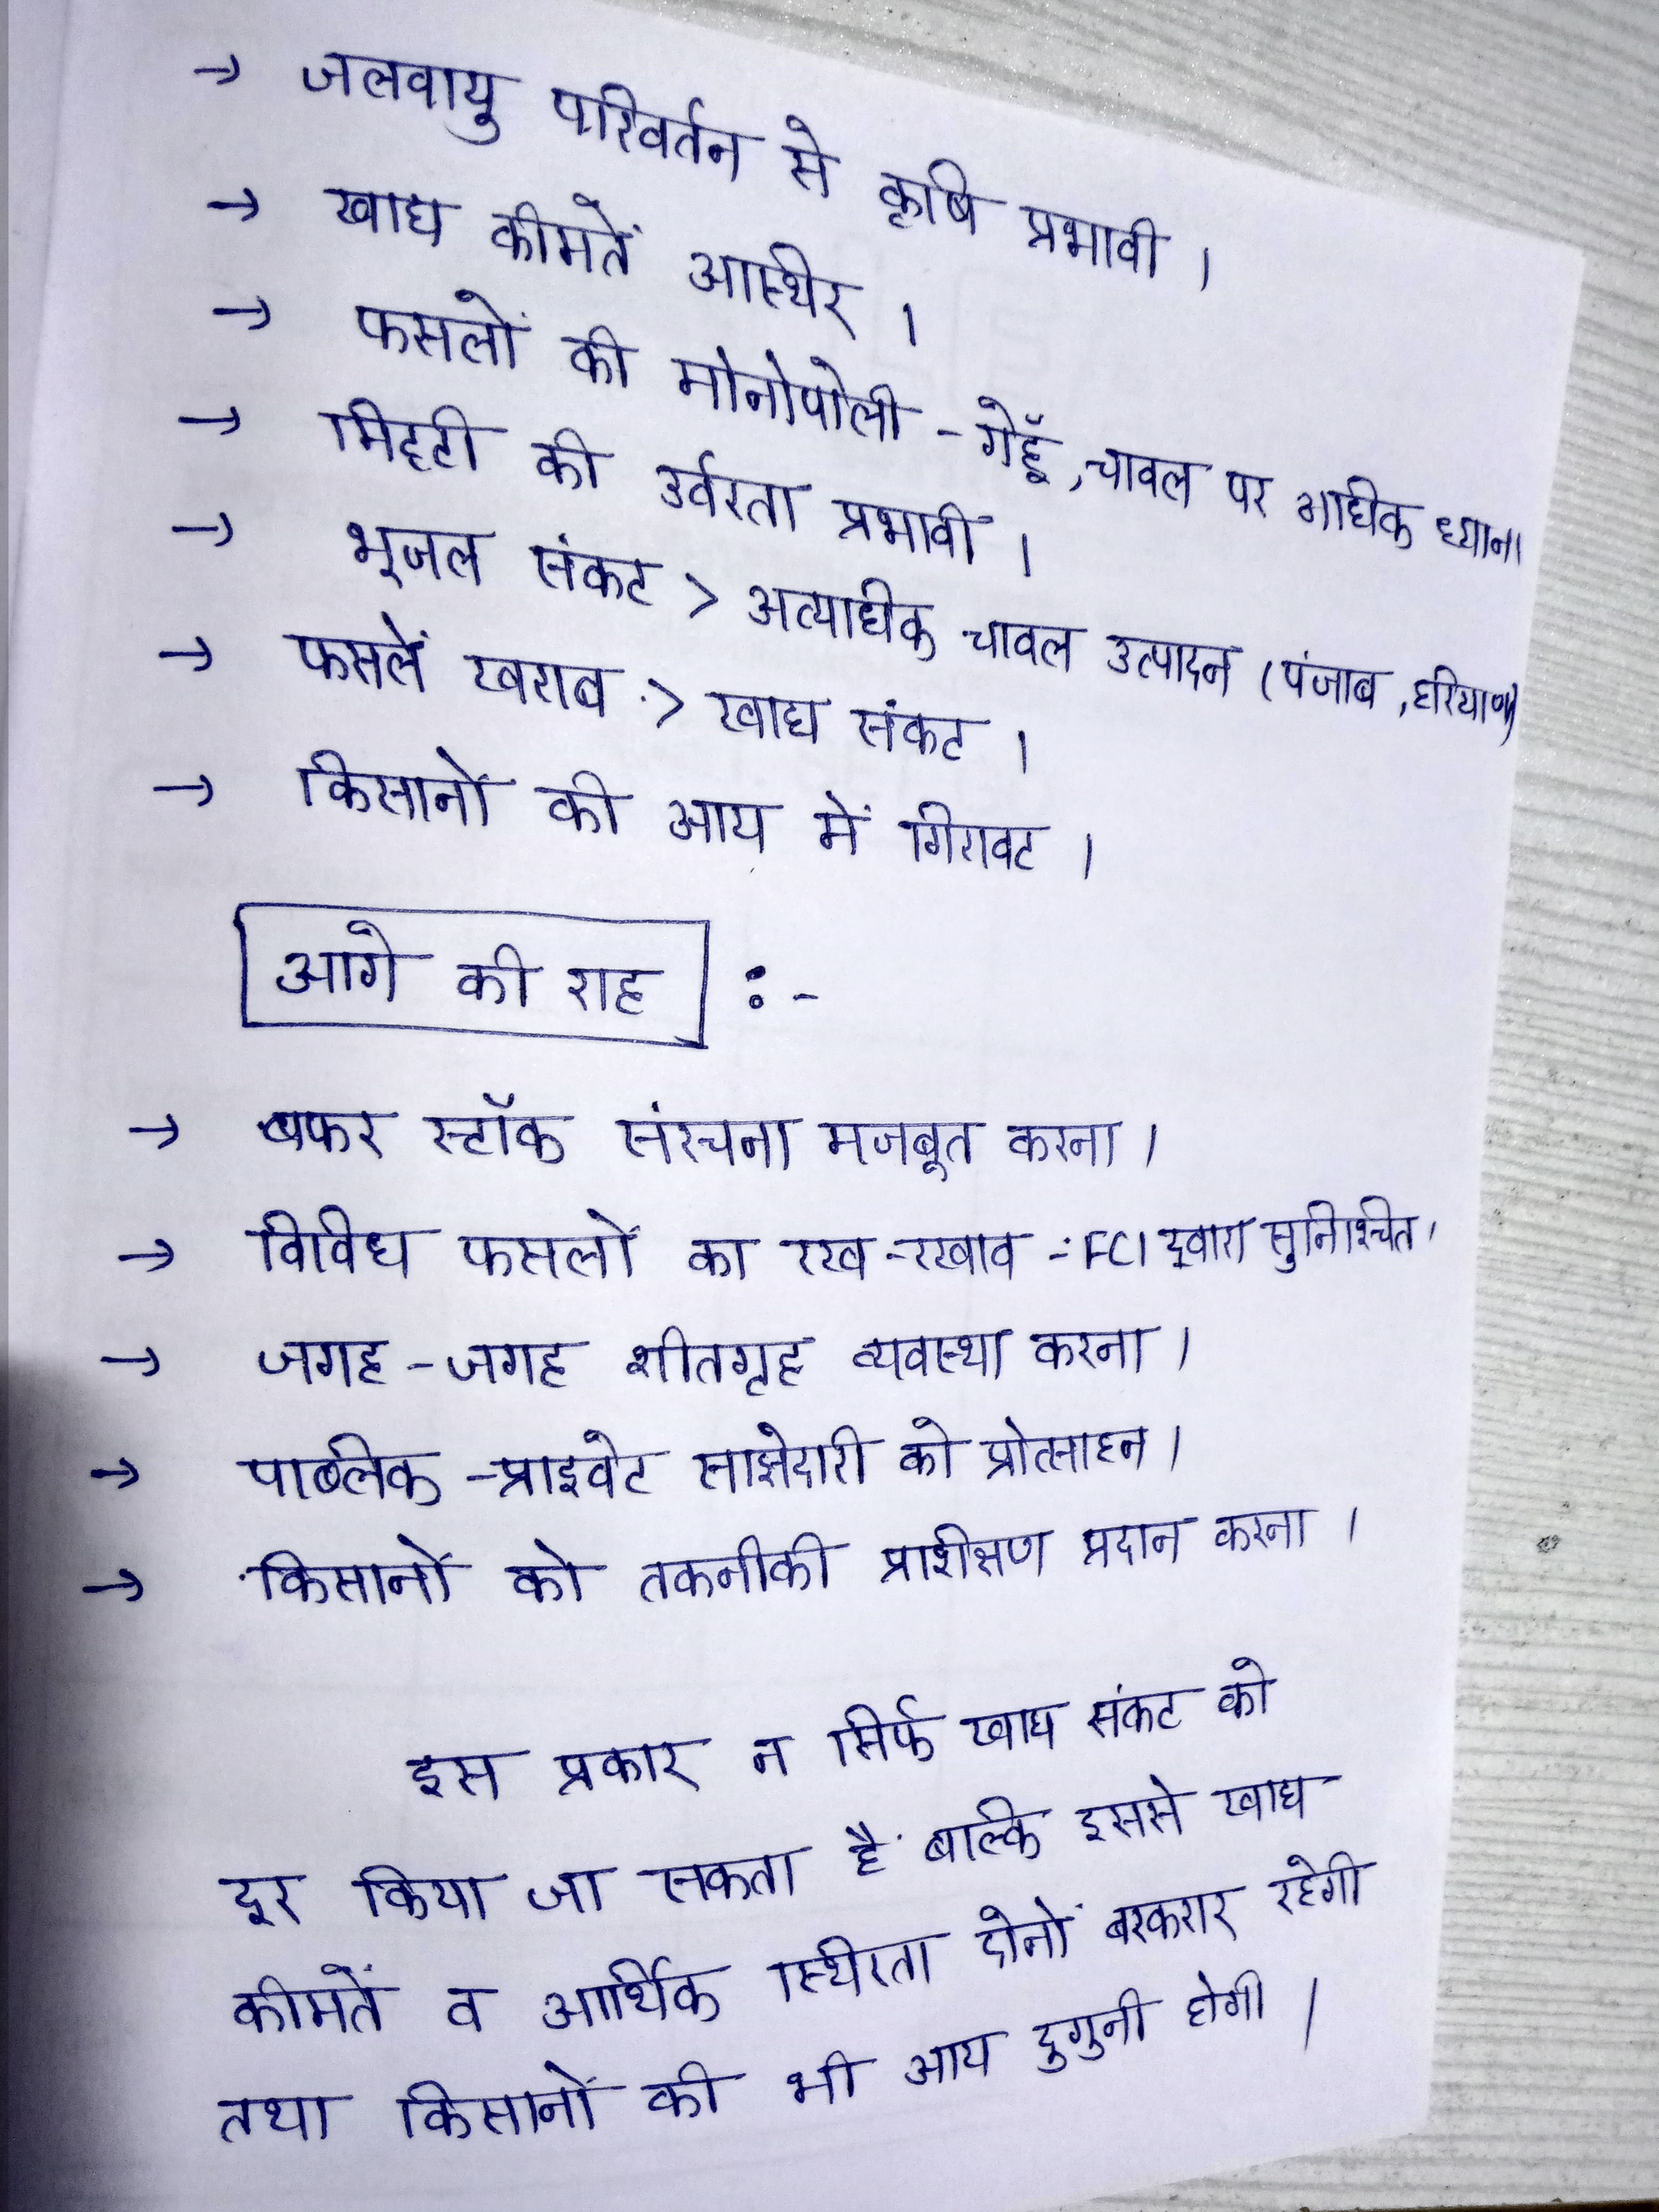 → जलवायु परिवर्तन से कृषि प्रभावी ।
→ खाद्य कीमतें अस्थिर ।
→ फसलों की मोनोपोली - गेहूँ, चावल पर अधिक ध्यान।
→ मिट्टी की उर्वरता प्रभावी ।
→ भूजल संकट > अत्याधिक चावल उत्पादन (पंजाब, हरियाणा)
→ फसलें खराब > खाद्य संकट ।
→ किसानों की आय में गिरावट ।
आगे की राह :-
→ बफर स्टॉक संरचना मजबूत करना ।
→ विविध फसलों का रख-रखाव - FCI द्वारा सुनिश्चित।
→ जगह-जगह शीतगृह व्यवस्था करना ।
→ पब्लिक-प्राइवेट साझेदारी को प्रोत्साहन ।
→ किसानों को तकनीकी प्रशिक्षण प्रदान करना ।
इस प्रकार न सिर्फ खाद्य संकट को
दूर किया जा सकता है बल्कि इससे खाद्य
कीमतें व आर्थिक स्थिरता दोनों बरकरार रहेगी
तथा किसानों की भी आय दुगुनी होगी ।